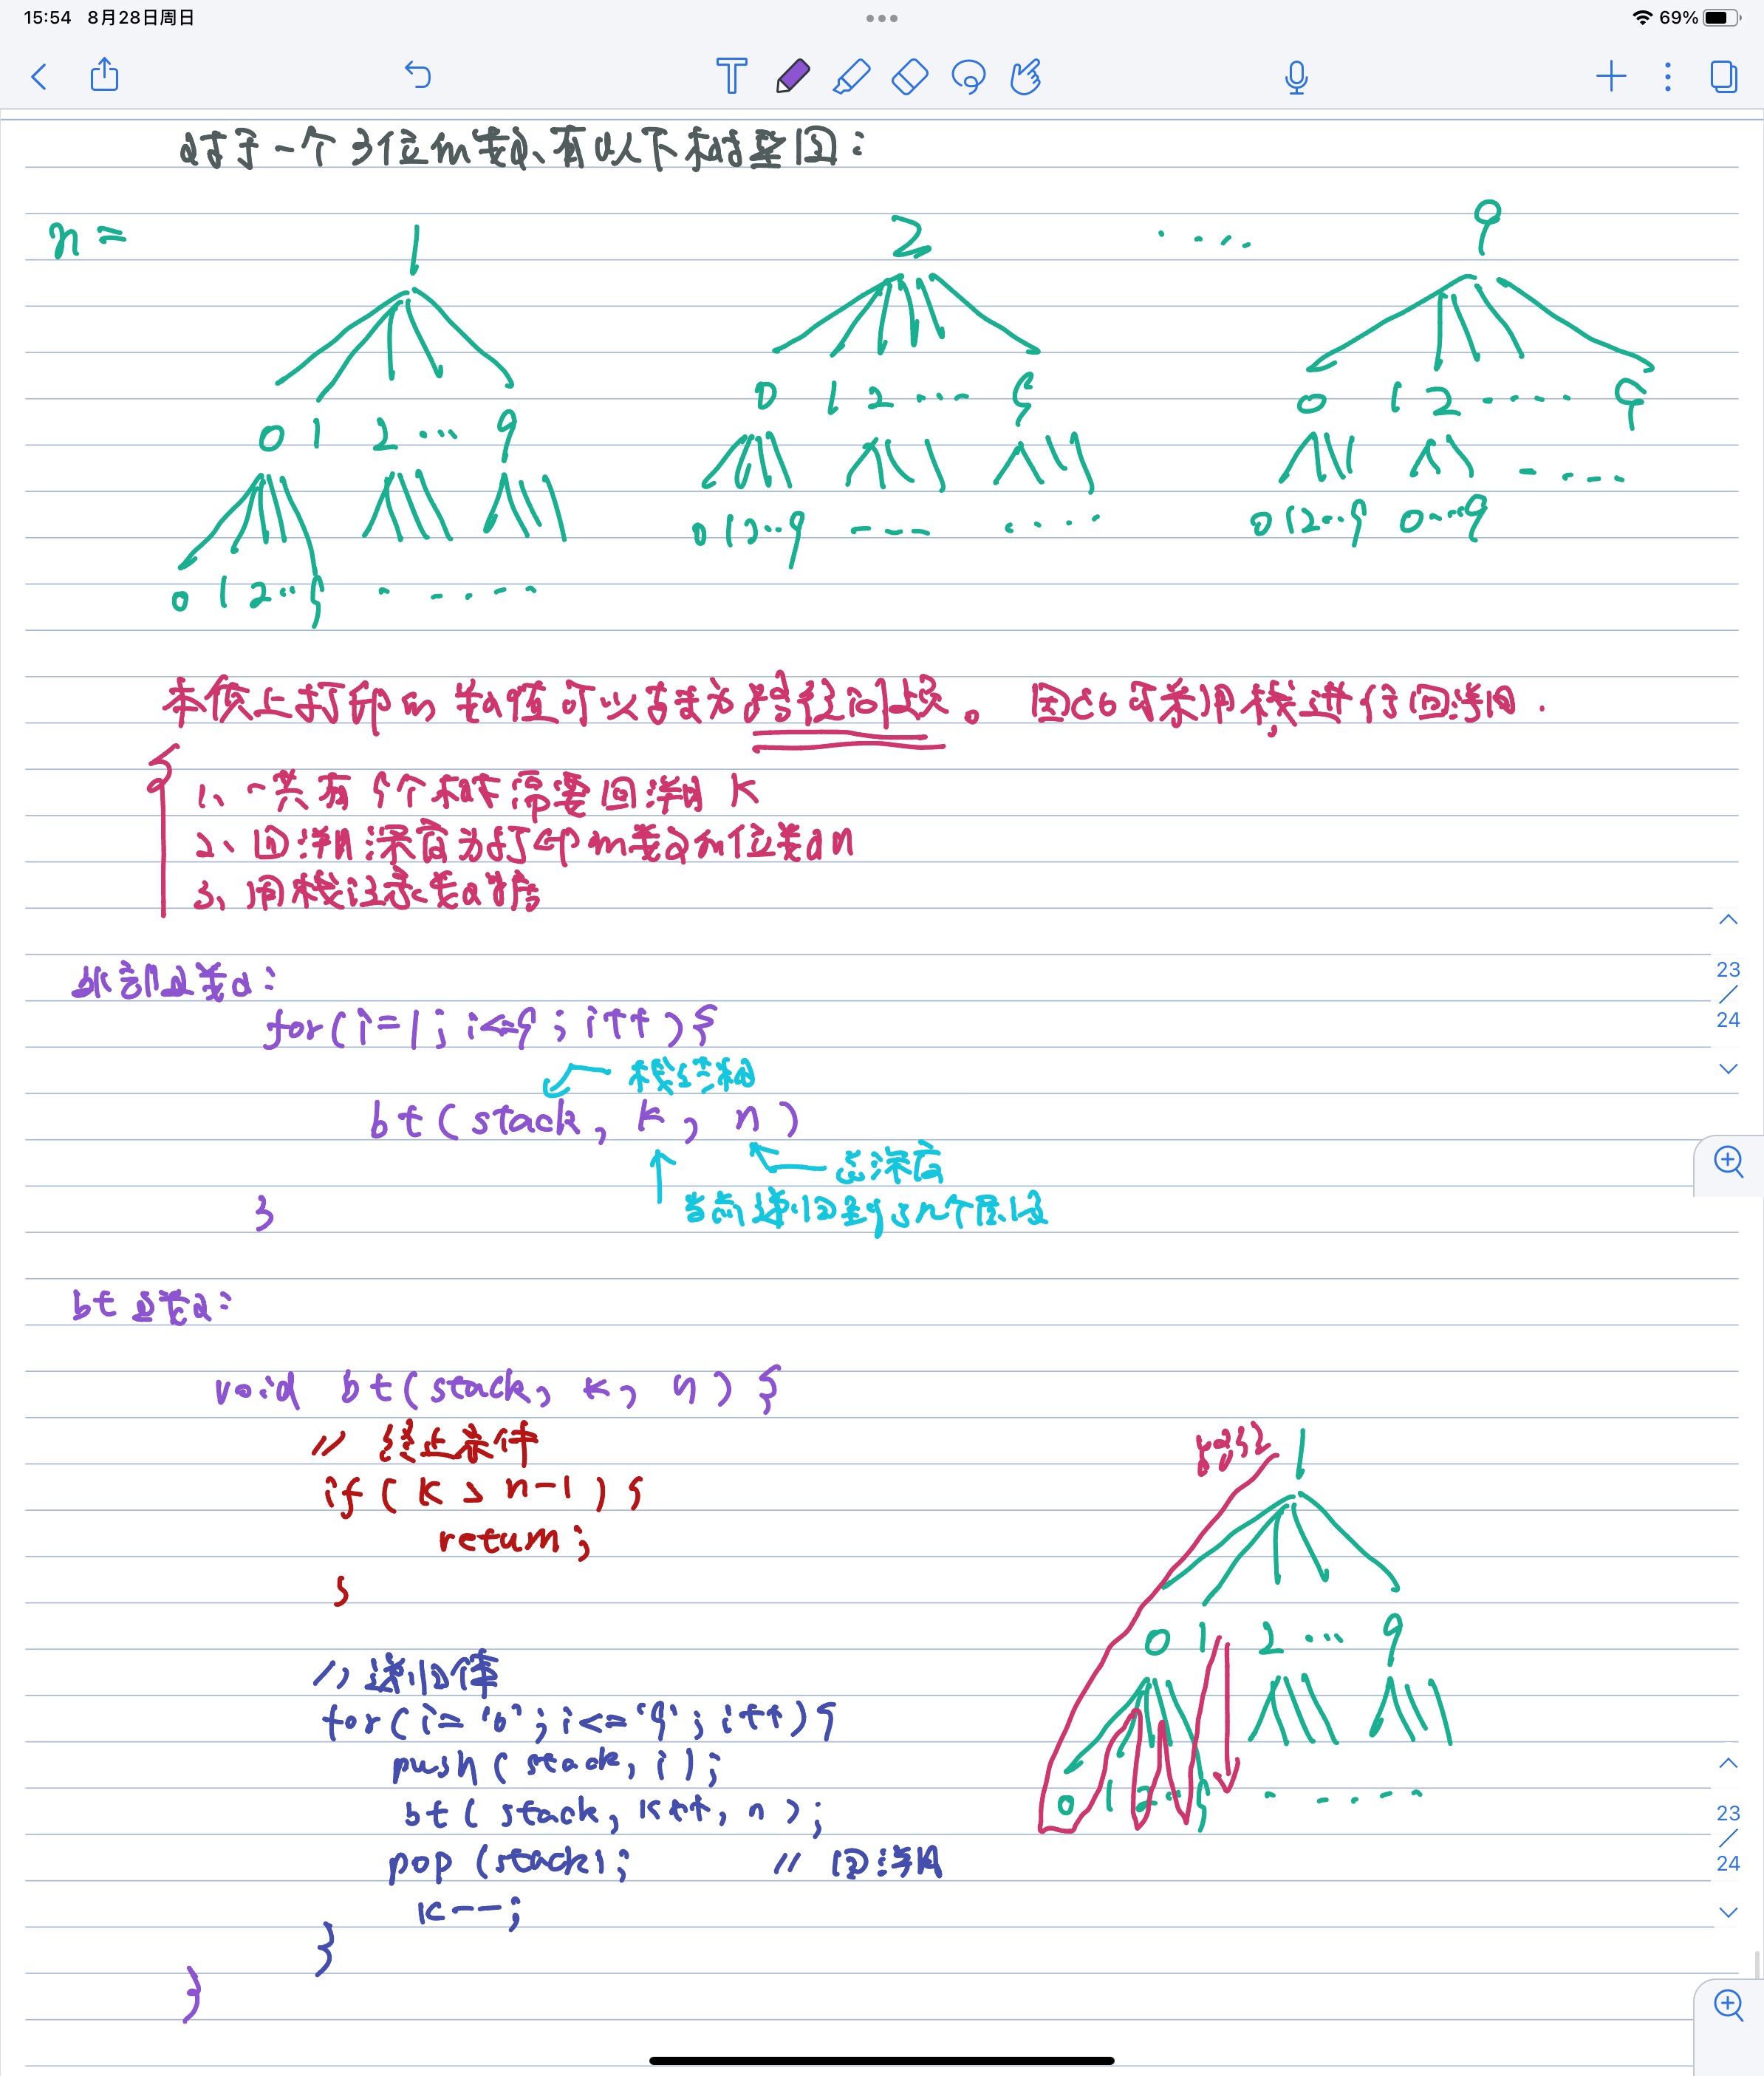 15:54 8月28日周日
69%
对于一个3位的数,有以下树型图:
n = 1 2 .... 9
0 1 2 ... 9
0 1 2 ... 9
0 1 2 .... 9
0 1 2 .. 9 ......
0 1 2 .. 9 ---- ....
0 1 2 .. 9 0 ... 9
本质上打印的数值可以变为路径问题。因此可采用栈进行回溯.
1、一共有9个树需要回溯 k
2、回溯深度为打印的数的位数 n
3、用栈记录数值
for(i=1; i<=9; i++){
栈结构
bt(stack, k, n)
总深度
当前递归到了几个层次
}
bt函数:
void bt(stack, k, n) {
// 终止条件
if( k > n-1 ) {
return;
}
// 递归体
for(i='0'; i<='9'; i++){
push(stack, i);
bt(stack, k++, n);
pop(stack); // 回溯
k--;
}
}
1
0 1 2 ... 9
0 1 2 .. 9 ......
23
24
23
24